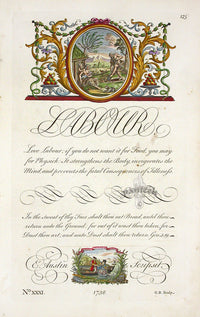 125
LABOUR.
Love Labour; if you do not want it for Food, you may
for Physick. It strengthens the Body, invigorates the
Mind, and prevents the fatal Consequences of Idleness.
In the sweat of thy Face shalt thou eat Bread, untill thou
return unto the Ground; for out of it wast thou taken, for
Dust thou art, and unto Dust shalt thou return. Gen.
E. Austin Scripsit.
No. XXXI.
1738.
G. B. Sculp.